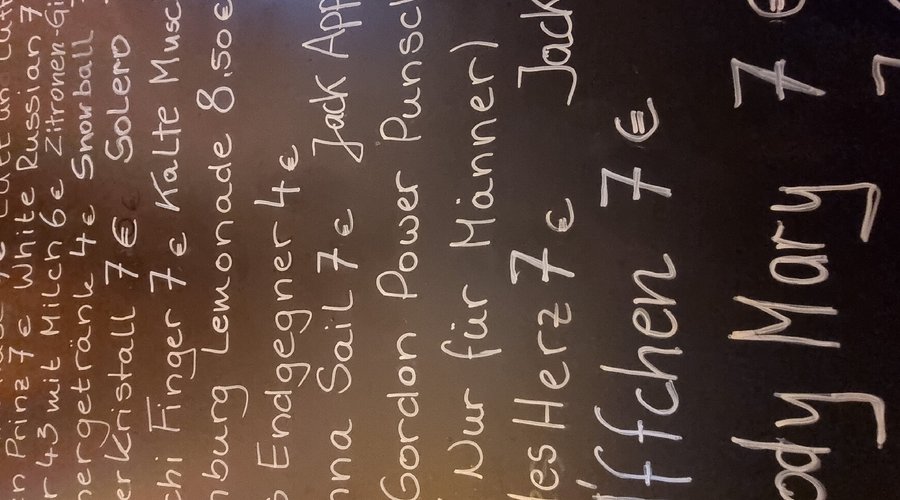 n Prinz 7€ White Russian 7
r 43 mit Milch 6€ Zitronen-Gi
nergetränk 4€ Snowball
er Kristall 7€ Solero
chi Finger 7€ Kalte Musc
nburg Lemonade 8.50€
s Endgegner 4€
nna Sail 7€ Jack App
Gordon Power Punsc
(Nur für Männer)
les Herz 7€ Jack
iffchen 7€
ody Mary 7€